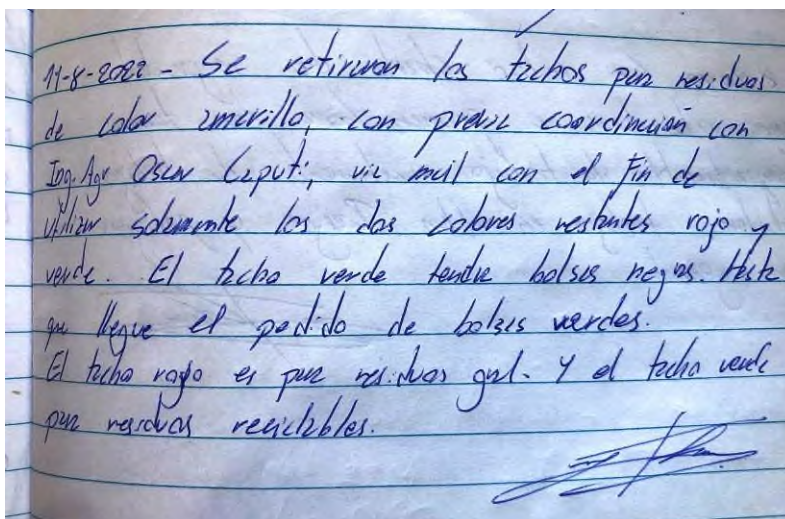 11-8-2022 - Se retiraron los tachos para residuos
de color amarillo, con previa coordinación con
Ing. Agr Oscar Caputi, via mail con el fin de
utilizar solamente los dos colores restantes rojo y
verde. El tacho verde tendra bolsas negras. Hasta
que llegue el pedido de bolsas verdes.
El tacho rojo es para residuos gral. Y el tacho verde
para residuos reciclables.